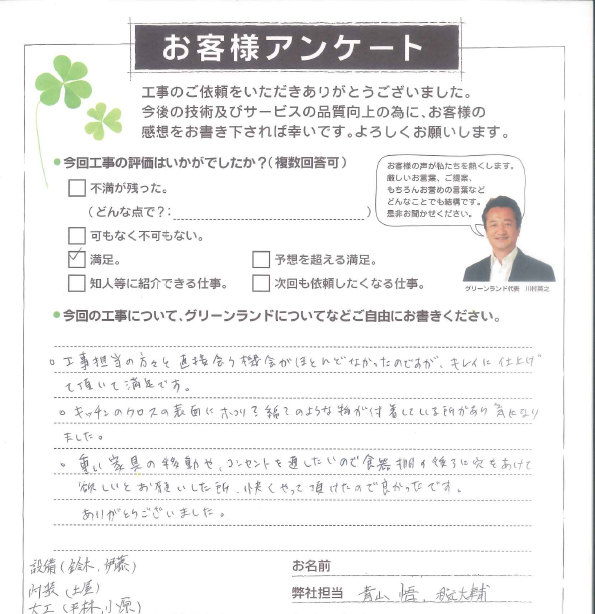 お客様アンケート
工事のご依頼をいただきありがとうございました。
今後の技術及びサービスの品質向上の為に、お客様の
感想をお書き下されば幸いです。よろしくお願いします。
●今回工事の評価はいかがでしたか?(複数回答可)
不満が残った。
(どんな点で?: )
可もなく不可もない。
満足。
予想を超える満足。
知人等に紹介できる仕事。
次回も依頼したくなる仕事。
お客様の声が私たちを熱くします。
厳しいお言葉、ご提案、
もちろんお誉めの言葉など
どんなことでも結構です。
是非お聞かせください。
グリーンランド代表 川村
●今回の工事について、グリーンランドについてなどご自由にお書きください。
○工事担当の方々と直接会う機会がほとんどなかったのですが、キレイに仕上げ
て頂いて満足です。
○キッチンのクロスの表面にホコリ?綿?のような物が付着している所があり気になり
ました。
○重い家具の移動や、コンセントを通したいので食器棚の後ろに穴をあけて
欲しいとお願いした所、快くやって頂けたので良かったです。
ありがとうございました。
設備(鈴木、伊藤)
内装(土屋)
大工(手林、小源)
お名前
弊社担当 青山 悟、大輔